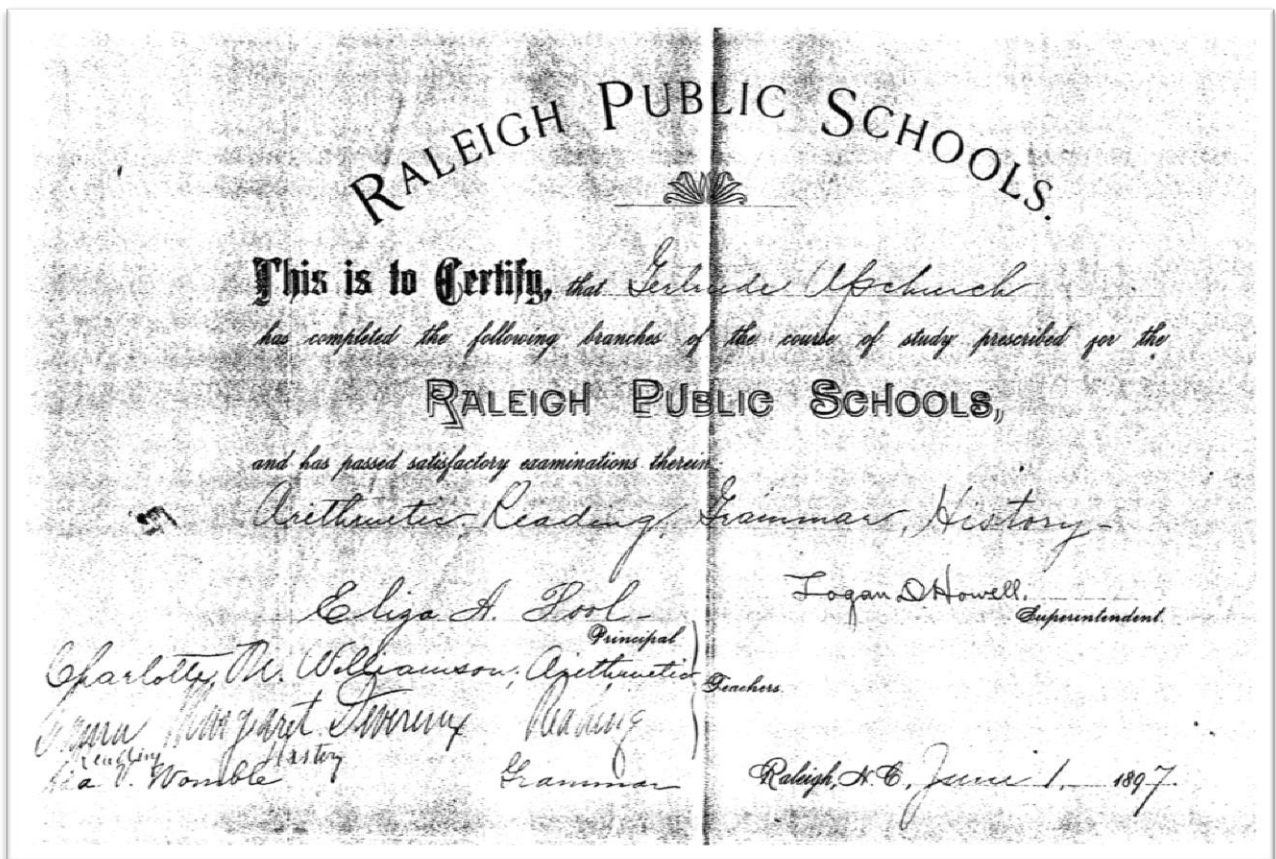 RALEIGH PUBLIC SCHOOLS.
This is to Certify, that Gertrude Upchurch
has completed the following branches of the course of study prescribed for the
RALEIGH PUBLIC SCHOOLS,
and has passed satisfactory examinations therein.
Arithmetic, Reading, Grammar, History
Eliza A. Pool
Principal
Logan D Howell.
Superintendent.
Charlotte M. Williamson, Arithmetic
Teachers.
Margaret Devereux Reading
History
Womble Grammar
Raleigh, N. C. June 1, 1897.